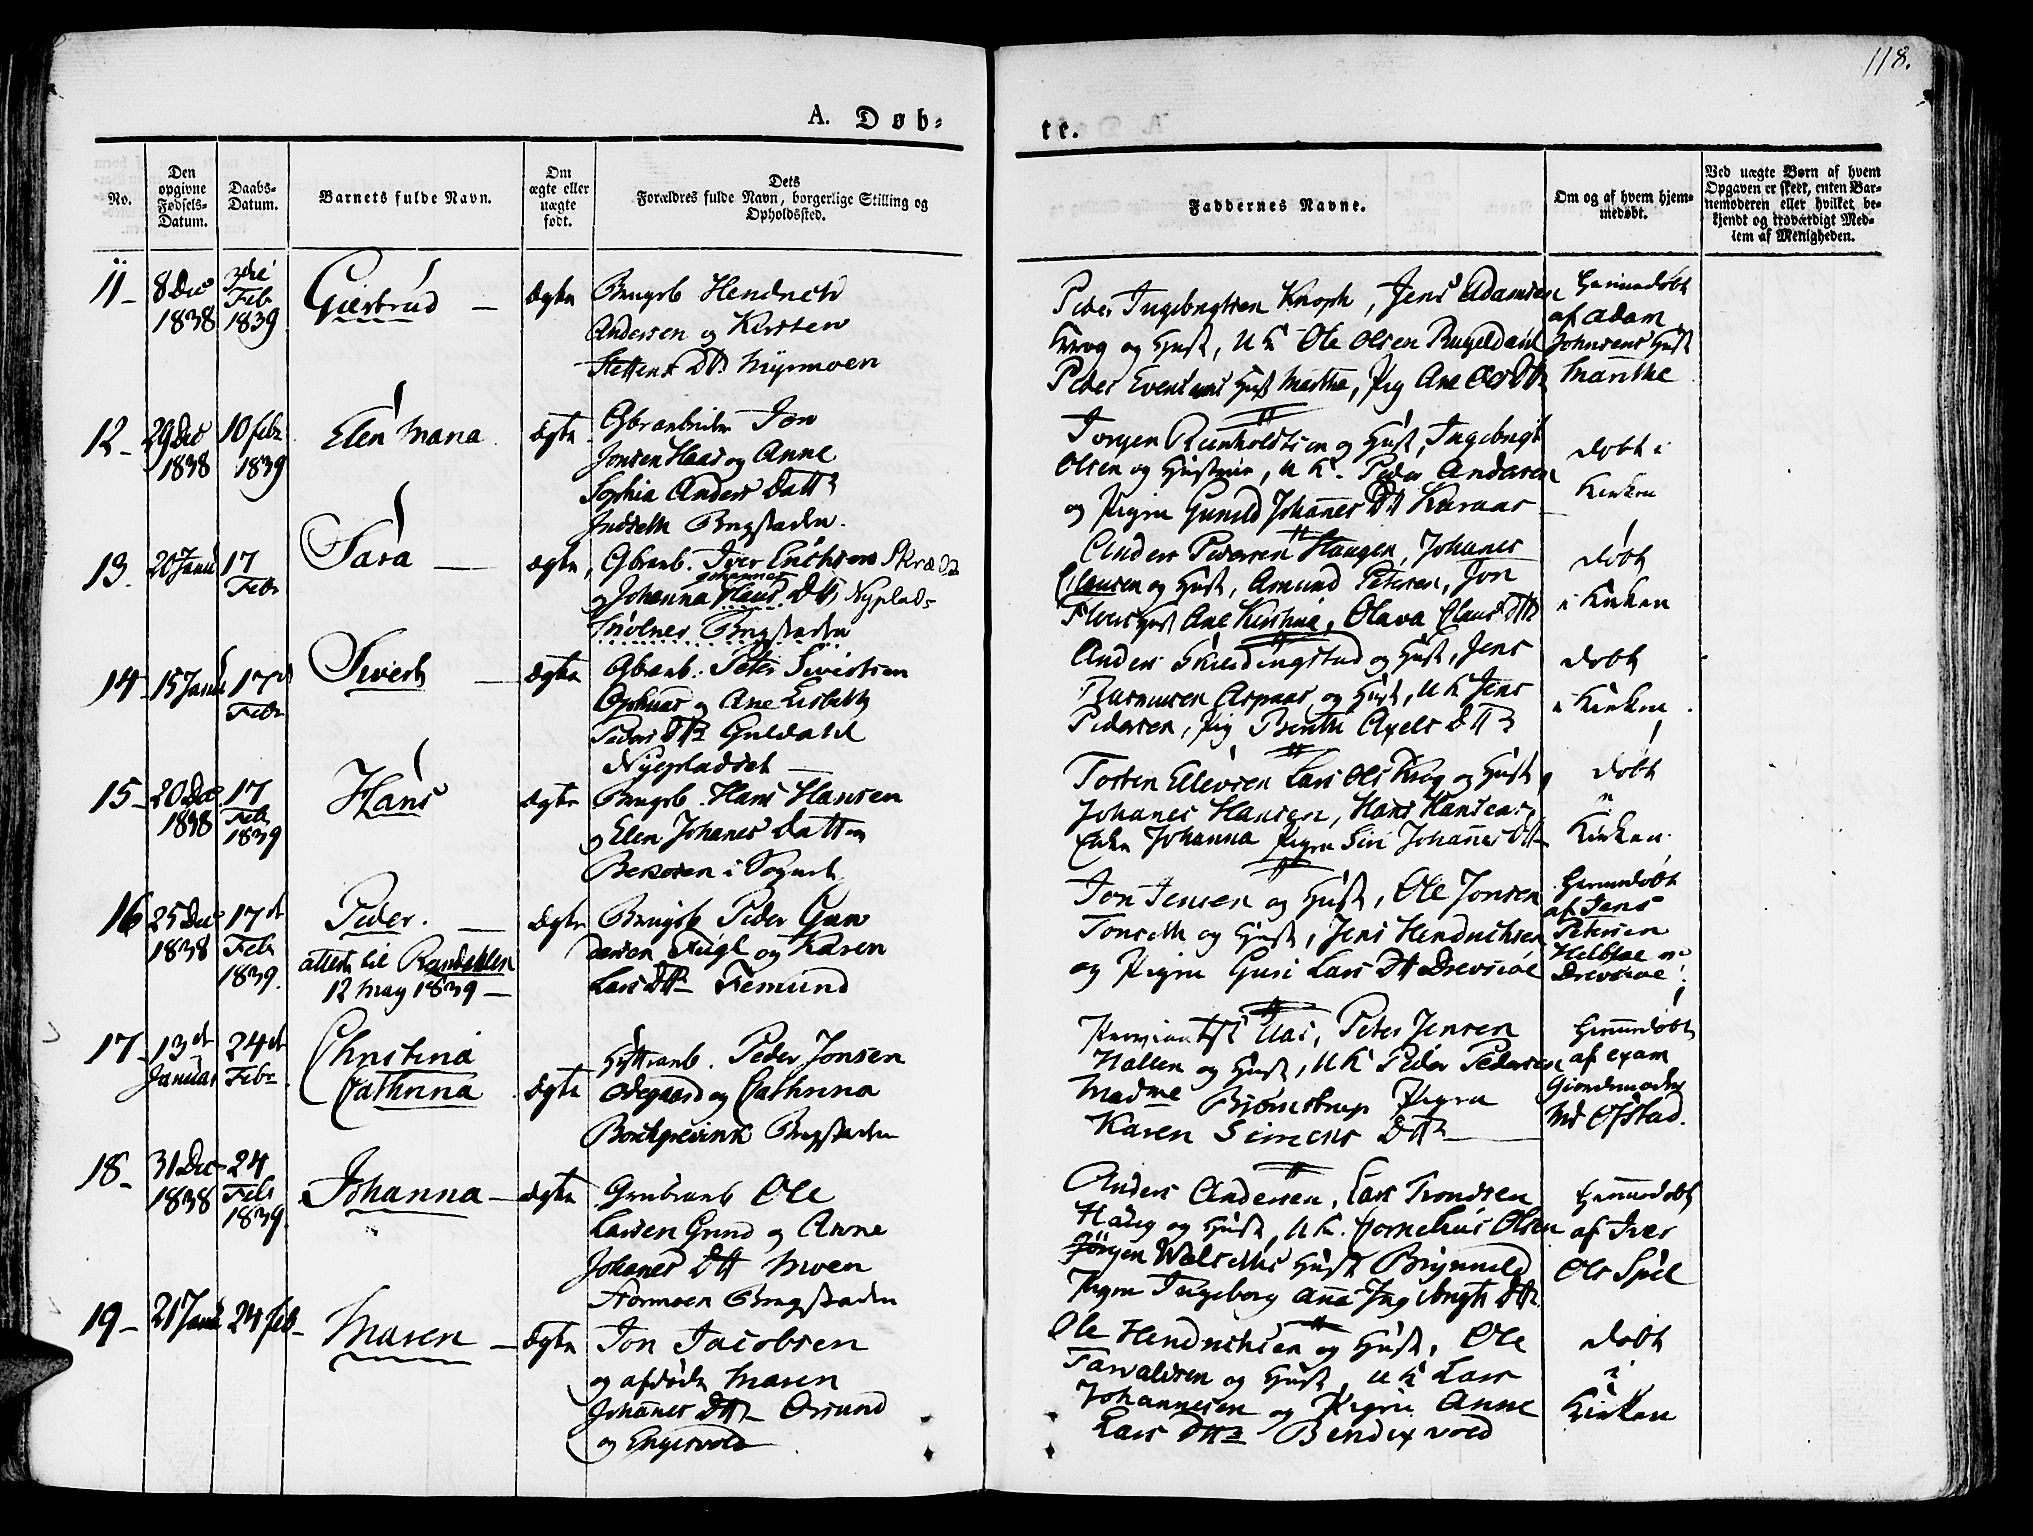 118.
A. Døb-
te.
No.
Den opgivne Fødsels-Datum.
Daabs-Datum.
Barnets fulde Navn.
Om ægte eller uægte født.
Dets Forældres fulde Navn, borgerlige Stilling og Opholdssted.
Faddernes Navne.
Om og af hvem hjemmedøbt.
Ved uægte Børn af hvem Opgaven er skeet, enten Barnemoderen eller hvilket bekjendt og troværdigt Medlem af Menigheden.
11 -
8 Dec
1838
3die
Feb
1839
Giertrud
ægte
Brugsb Hendrich
Andersen og Kirsten
Dtt. Myrmoen
Peder Ingebrigtsen Knoph, Jens Adamsen
Krog og Hust, UK Ole Olsen Rugeldahl
Peder Evensens Hust Marthe, Pig Ane Ols Dtt
Hiemmedøbt
af Adam
Johnsens Hust
Marithe
12 -
29 Dec
1838
10 febr
1839
Elen Maria
ægte
Gbrarbeider Jon
Jonsen Haas og Anne
Sophia Anders Datt
Indseth Bergstaden.
Jørgen Reinholdtsen og Hust, Ingebrigt
Olsen og Hustrue, UK. Peder Andersen
og Pigen Gunild Johannes Dtt Karaas
døbt i
Kirken
13.
20 Janu
17
Feb
Sara
ægte
Gbrarb. Iver Erichsen
og Johanna Hans Dtt, Nyplads
Johannes
Bergstaden
Anders Pedersen Haugen, Johanes
Clausen og Hust, Amund Petersen, Jon
Hust Ane Kirstina, Olava Claus Dtt
døbt
i Kirken
14 -
15 Janu
17d
Feb
Sivert
ægte
Gbrarb. Peter Sivertsen
Ophuus og Ane Lisbeth
Peders Dtr Guldahl
Nyepladset
Anders Skieldingstad og Hust, Jens
Rasmusen Aspaas og Hust, UK Jens
Pedersen, Pig Berith Axels Dtt
døbt
i Kirken
15 -
20 Dec
1838
17
Feb
1839
Hans
ægte
Brugsb. Hans Hansen
og Elen Johanes Datter
i Sognet
Torsten Ellevsen Lars Ols Krog og Hust,
Johanes Hansen, Hans Hansens
Enke Johanna Pigen Siri Johannes Dtt
døbt
i
Kirken
16
25 Dec
1838
17d
Feb
1839.
Peder.
attest til Reendahlen
12 May 1839 -
ægte
Brugsb Peder Gun
dersen Fugl og Karen
Lars Dtr Femund
Jon Jensen og Hust, Ole Jonsen
Tonseth og Hust, Jens Hendrichsen
og Pigen Guri Lars Dtt Drevsiøe
Hiemmedøbt
af Jens
Petersen
Drevsiøe
17 -
13d
Januar
24d
Feb
Christina
Cathrina
ægte
Hyttearb. Peder Jonsen
Ødegaard og Cathrina
Borchgrevink Bergstaden
Aas, Peter Jensen
Hallen og Hust, UK Peder Pedersen
Madme Bjørnstrup Pigen
Karen Simens Dtt
Hiemmedøbt
af exam
Giordemoder
Md Ofstad.
18 -
31 Dec
1838
24
Feb
1839.
Johanna
ægte
Grubearb Ole
Larsen Grind og Anne
Johanes Dtt Moen
Bergstaden
Anders Andersen, Lars Trondsen
og Hust, UK. Cornelius Olsen
Jörgen Hust Brynnild
Pigen Ingeborg Anna Ingebrigts Dtt
Hiemmedøbt
af Iver
Ols Spel
19 -
21 Janu
24 feb
Maren
ægte
Jon Jacobsen
og afdøde Maren
Johannes Dtr Osund
og Engesvold
Ole Hendrichsen og Hust, Ole
Tarvaldsen og Hust, UK Lars
Johannesen og Pigen Anne
Lars Dtt Bendexvold
døbt
i
Kirken